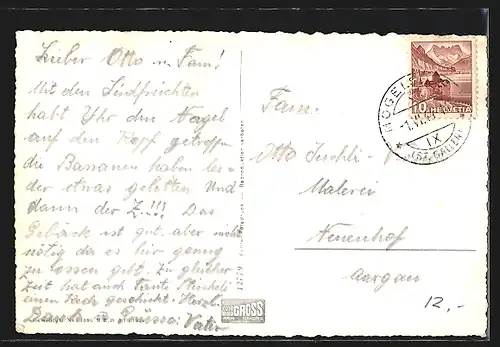 Lieber Otto u. Fam!
Mit den Südfrüchten
habt Ihr den Nagel
auf den Kopf getroffen
die Bananen haben lei-
der etwas gelitten Und
dann der Z!!!! Das
Gebäck ist gut. aber nicht
nötig da es hir genug
zu essen gibt. Zu gleicher
Zeit hat auch Tante
einen Pack geschickt. Herzl.
Dank u. Grüsse: Vater
Fam.
Otto Jeschli
Malerei
Neuenhof
Aargau
12,-
10 HELVETIA
(ST. GALLEN)
IX
13779
GROSS